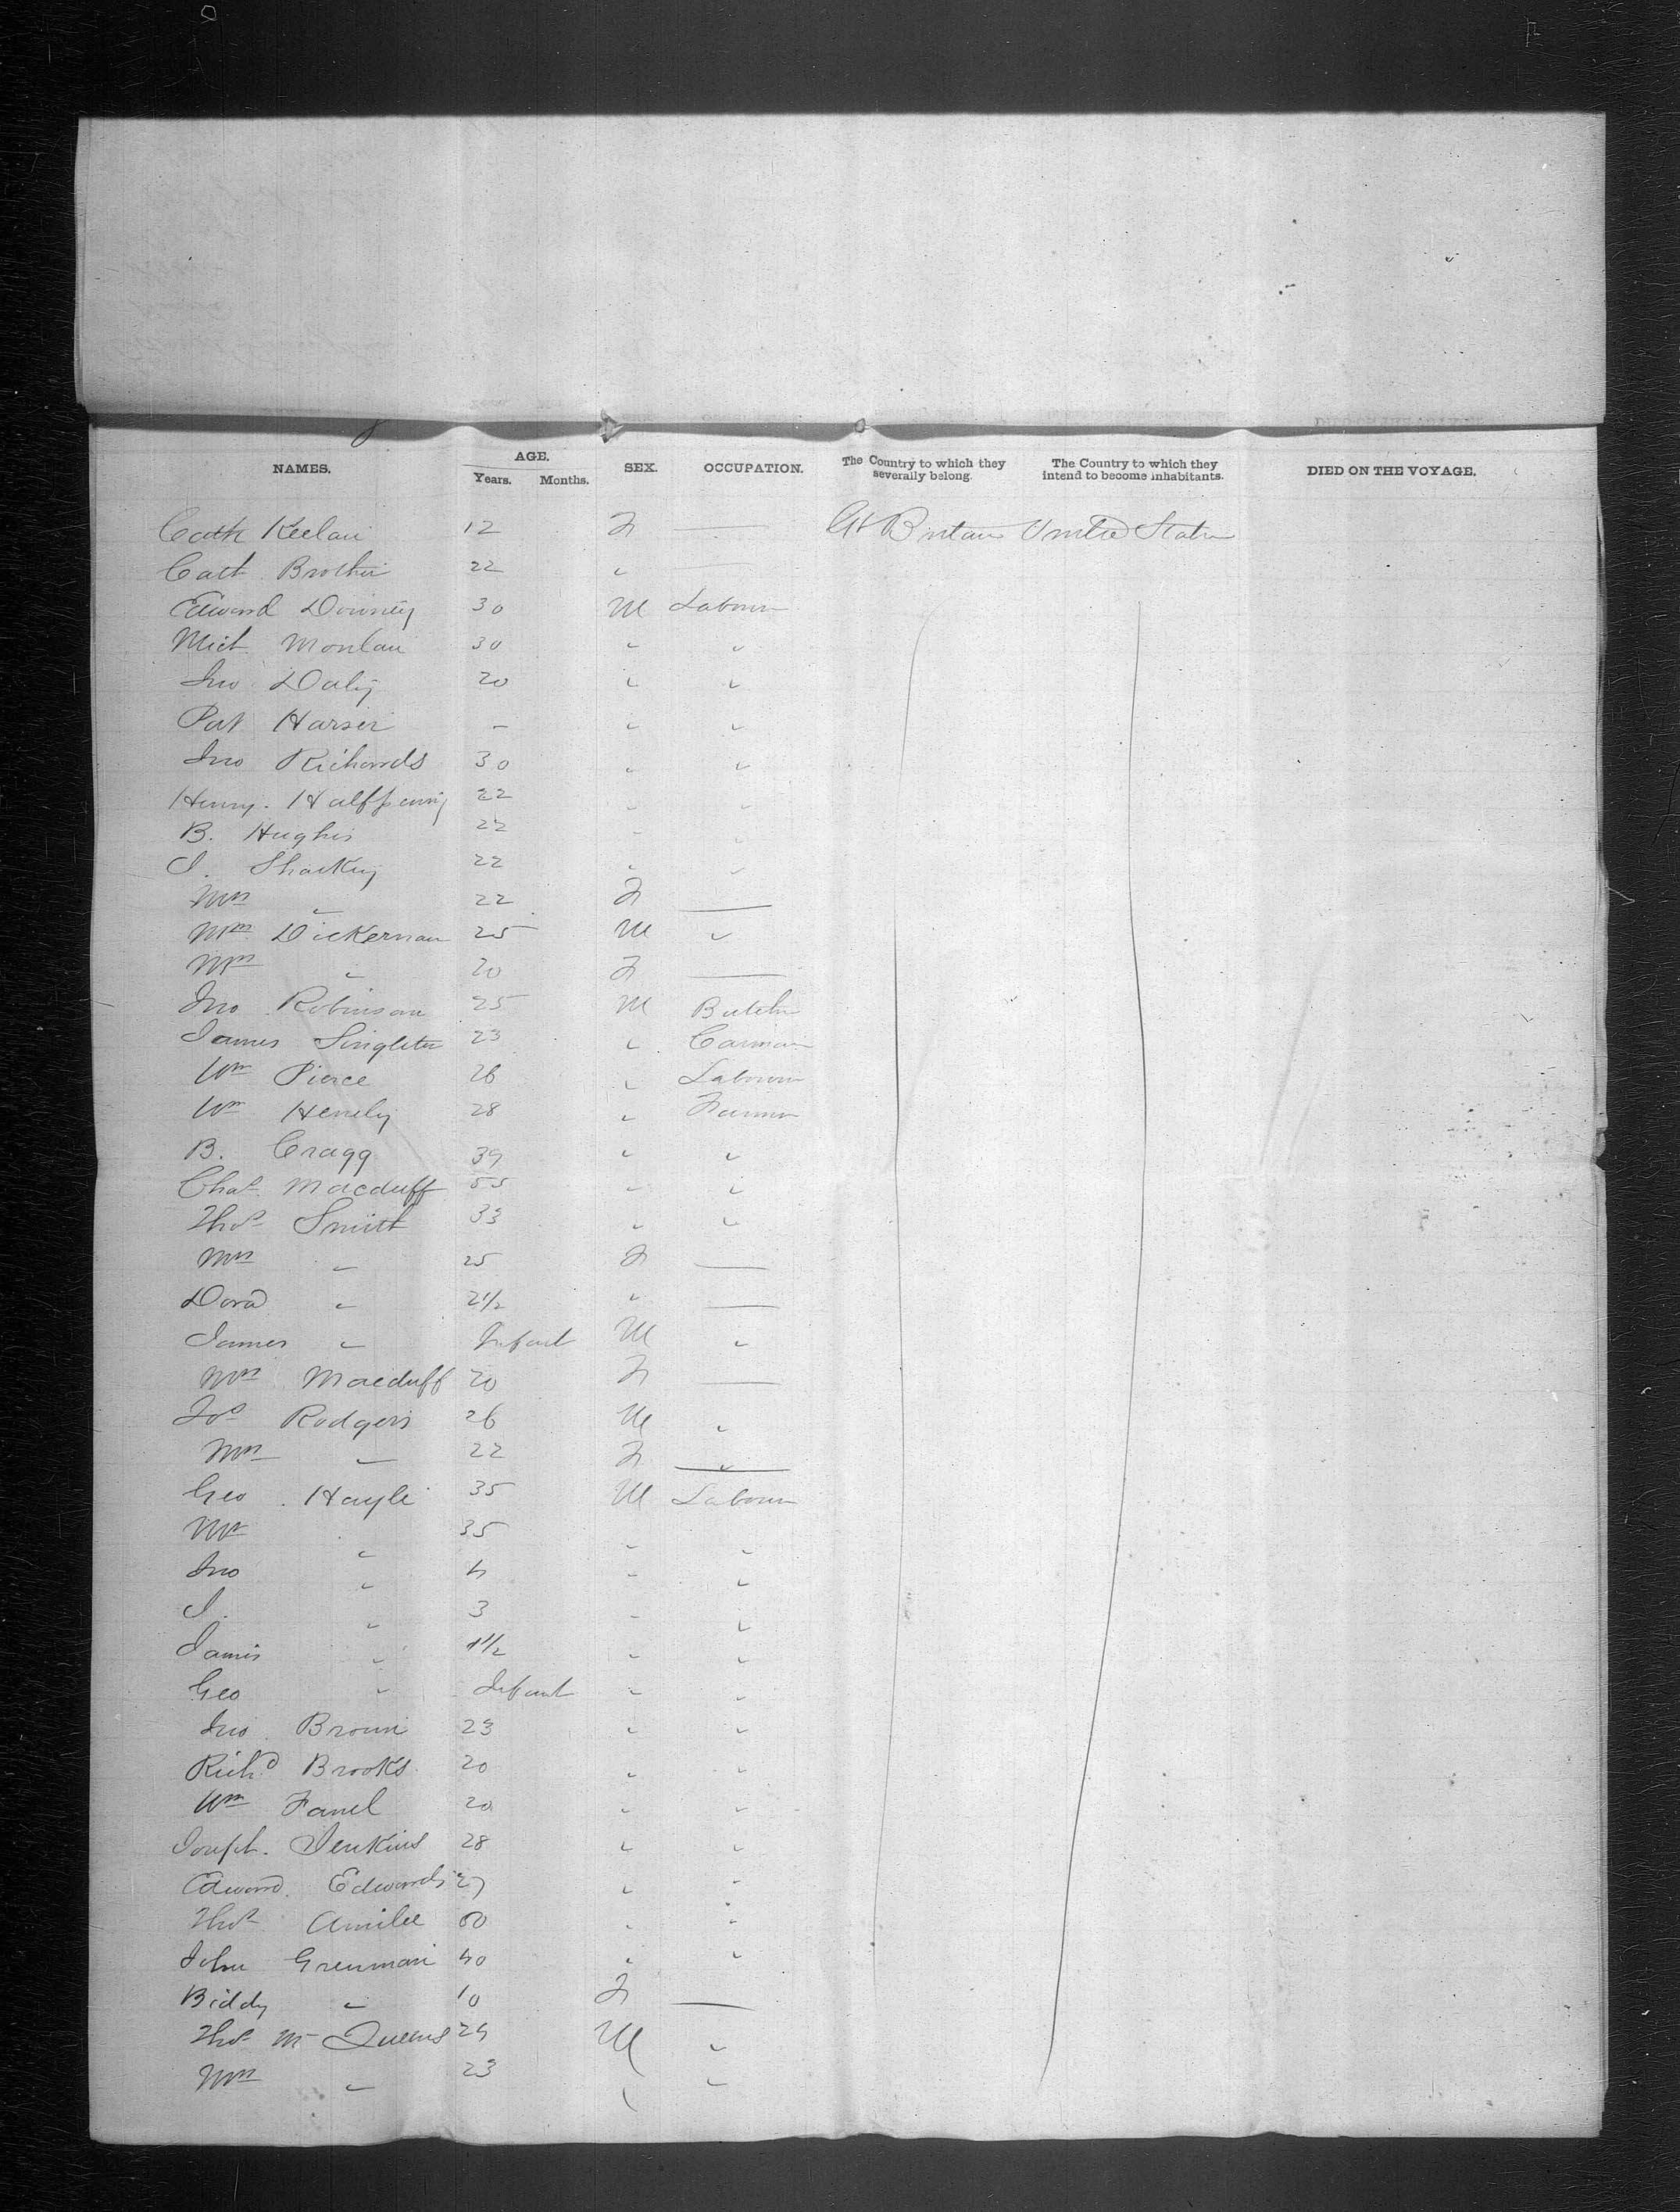 NAMES. AGE. Years. Months. SEX. OCCUPATION. The Country to which they severally belong. The Country to which they intend to become inhabitants. DIED ON THE VOYAGE.
Cath Keelan 12 F — Gt Britain United States
Cath Brother 22 "
Edward Downey 30 M Labourer
Mich. Monlan 30 " "
Jno Daly 20 " "
Pat Harser — " "
Jno Richards 30 " "
Henry. Halfpenny 22 " "
B. Hughes 22 " "
J. Sharkey 22 " "
Mrs " 22 F —
Wm Dickernan 25 M "
Mrs " 20 F —
Jno Robinson 25 M Butcher
James Singleton 23 " Carman
Wm Pierce 26 " Labourer
Wm Henely 28 " Farmer
B. Cragg 39 " "
Chas. Macduff 55 " "
Thos Smith 33 " "
Mrs " 25 F —
Dora " 2 1/2 " —
James " Infant M "
Mrs Macduff 20 F —
Jos Rodgers 26 M "
Mrs " 22 F "
Geo. Hayle 35 M Labourer
Mr " 35 " "
Jno " 4 " "
J. " 3 " "
James " 1 1/2 " "
Geo " Infant " "
Jno. Brown 23 " "
Richd Brooks. 20 " "
Wm 20 " "
Joseph. Jenkins 28 " "
Edward. Edwards 27 " "
Thos 60 " "
John Grenman 40 " "
Biddy " 10 F —
Thos Mc Queens 24 M "
Mrs " 23 "